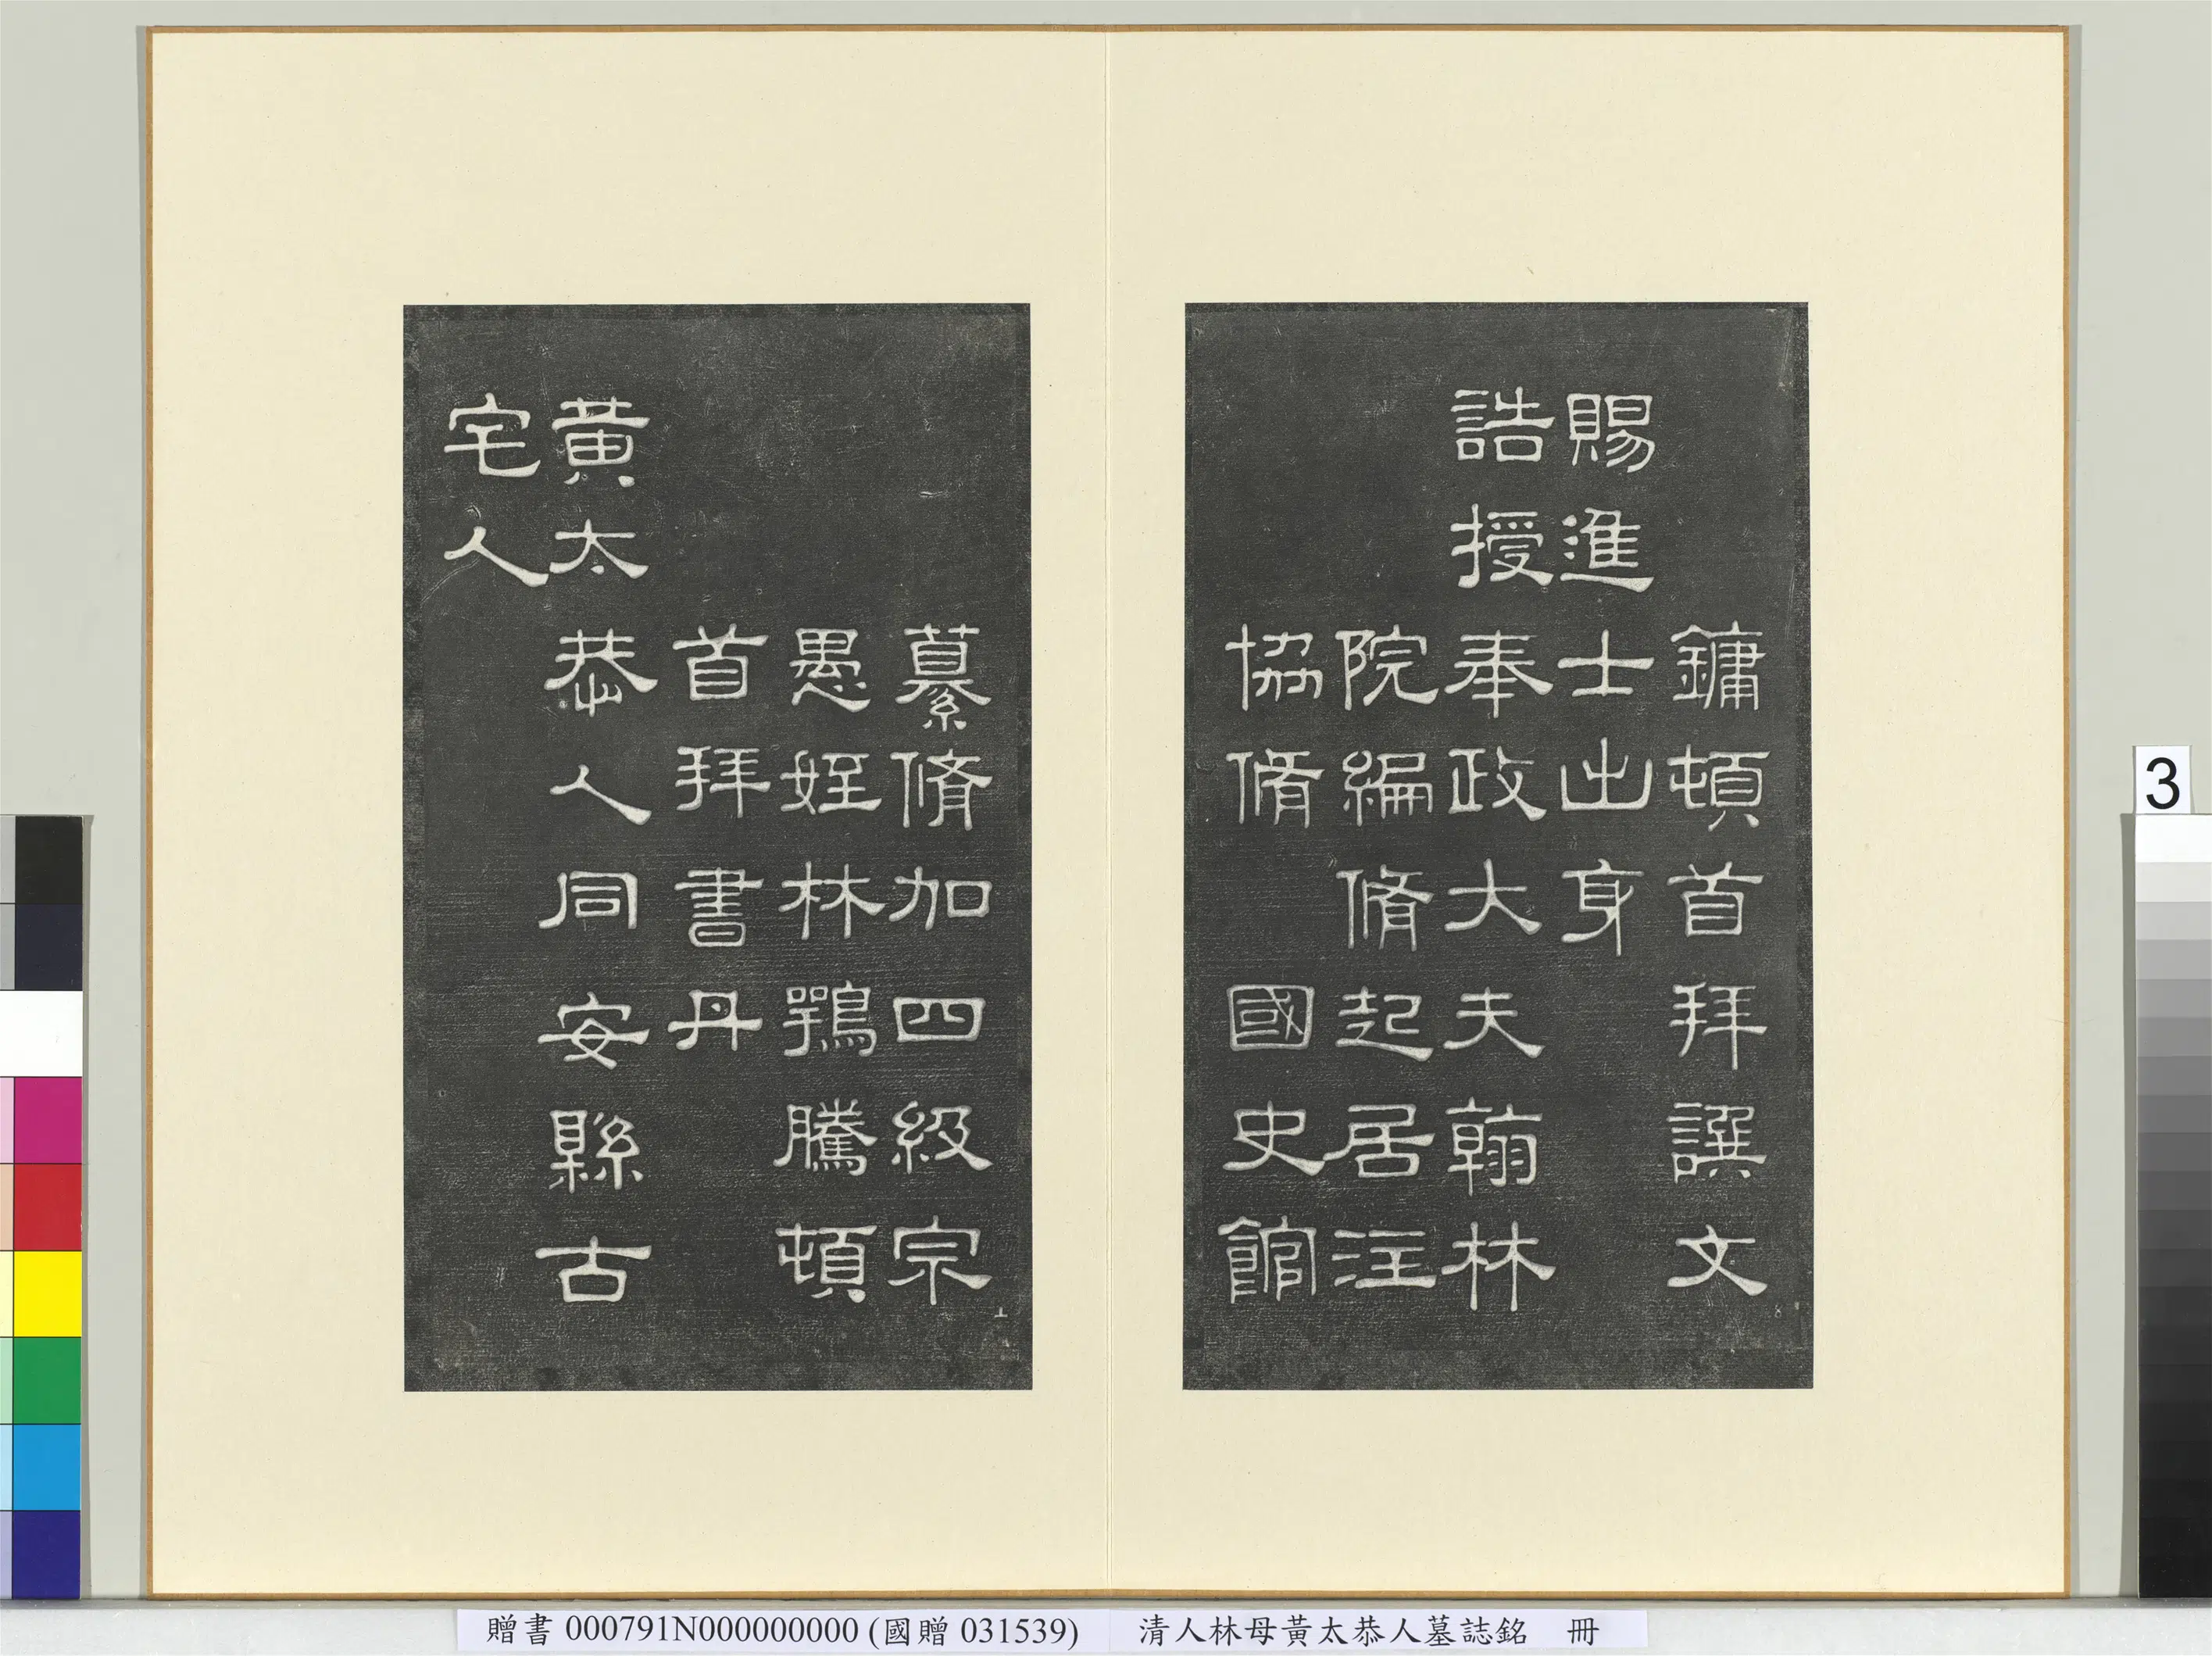 鏞頓首拜譔文
賜進士出身
誥授奉政大夫翰林
院編脩起居注
協脩國史館
纂脩加四級宗
愚姪林鶚騰頓
首拜書丹
黃太恭人同安縣古
宅人
3
贈書 000791N000000000 (國贈 031539) 清人林母黃太恭人墓誌銘 冊